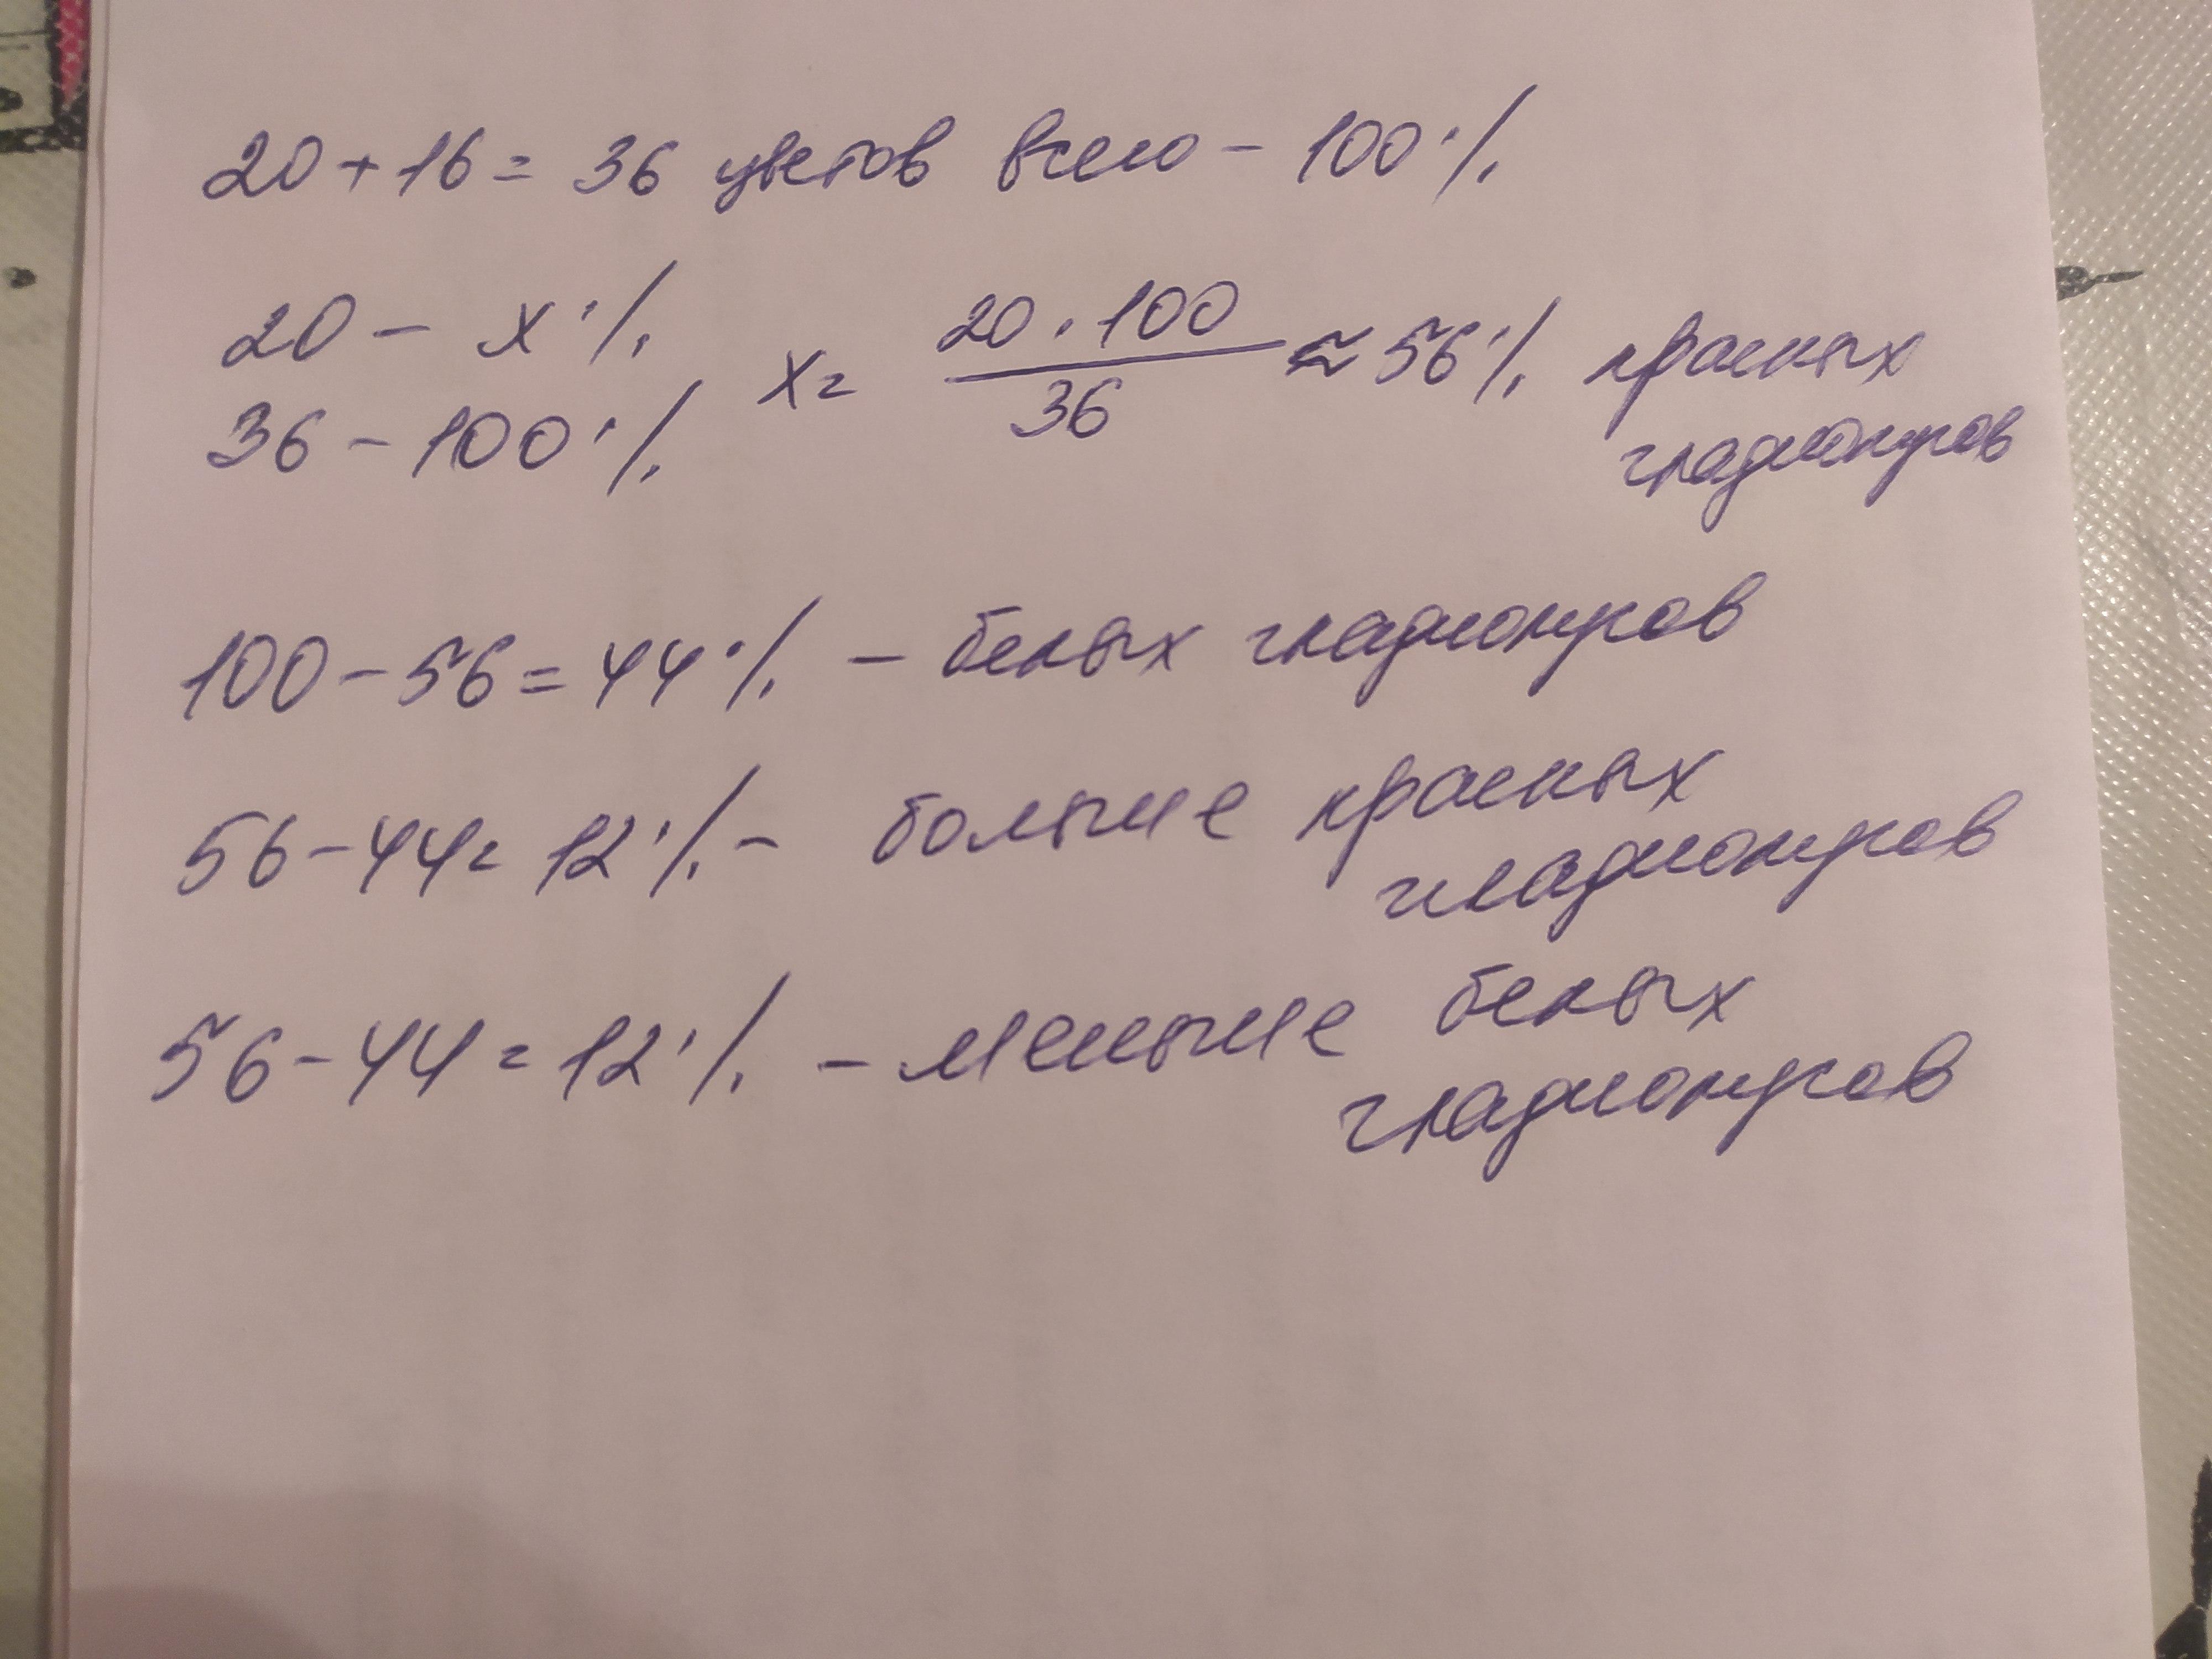 20 + 16 = 36 цветов всего - 100%
20 - х%
36 - 100%
х = 20 · 100 / 36 ≈ 56% красных
гладиолусов
100 - 56 = 44% - белых гладиолусов
56 - 44 = 12% - больше красных
гладиолусов
56 - 44 = 12% - меньше белых
гладиолусов